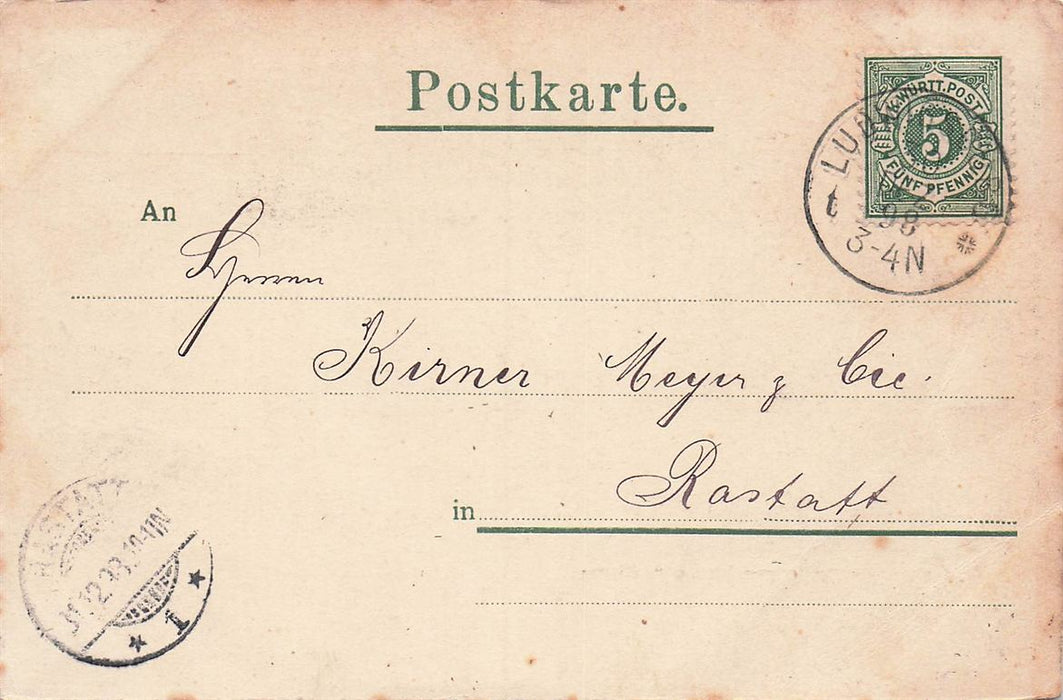 Postkarte.
K. WÜRTT. POST
5
FÜNF PFENNIG
LUD
t
98
3-4N
An
Herren
Kirner Meyer & Cie.
in Rastatt
RASTATT
12.98.10-11N
* 1 *